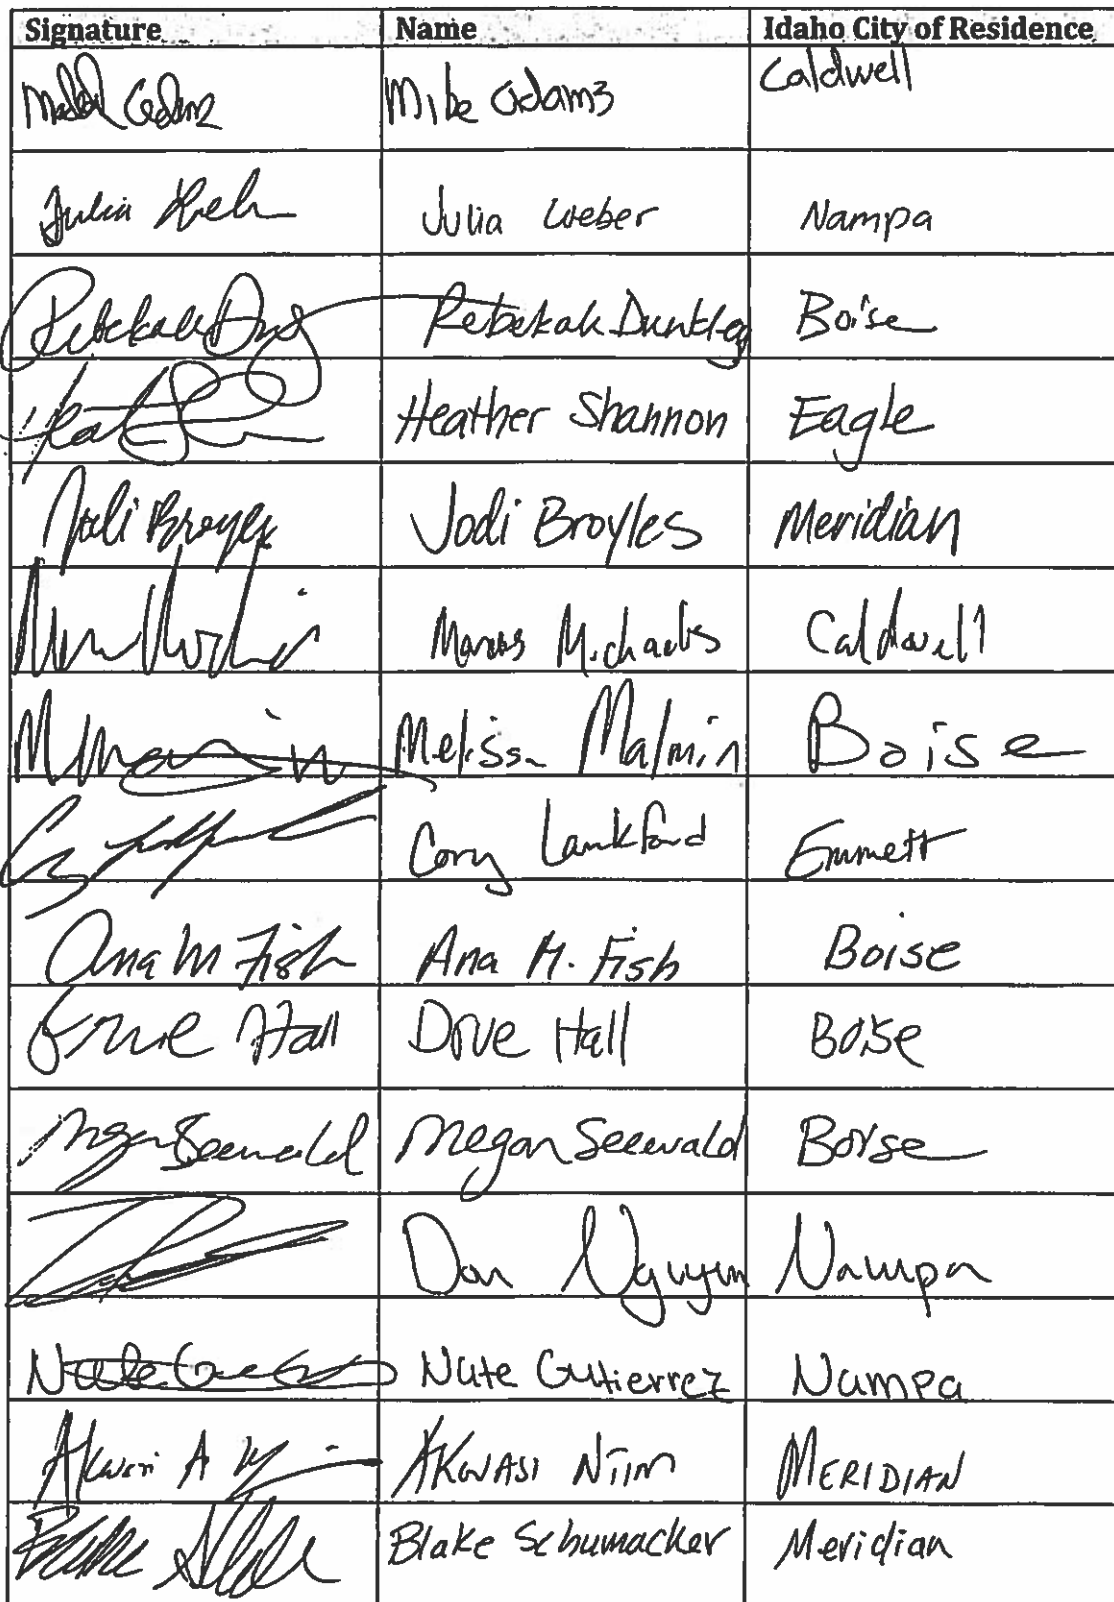 Signature Name Idaho City of Residence
Mike Adams Caldwell
Julia Weber Julia Weber Nampa
Rebekah Rebekah Dunkley Boise
Heather Shannon Eagle
Jodi Broyles Jodi Broyles Meridian
Marcus Michaelis Caldwell
Melissa Malmin Boise
Cory Lankford Emmett
Ana M Fish Ana M. Fish Boise
Hall Dove Hall Boise
Megan Seewald Megan Seewald Boise
Dan Nguyen Nampa
Nate Nate Gutierrez Nampa
Akwasi A Akwasi MERIDIAN
Blake Blake Schumacker Meridian